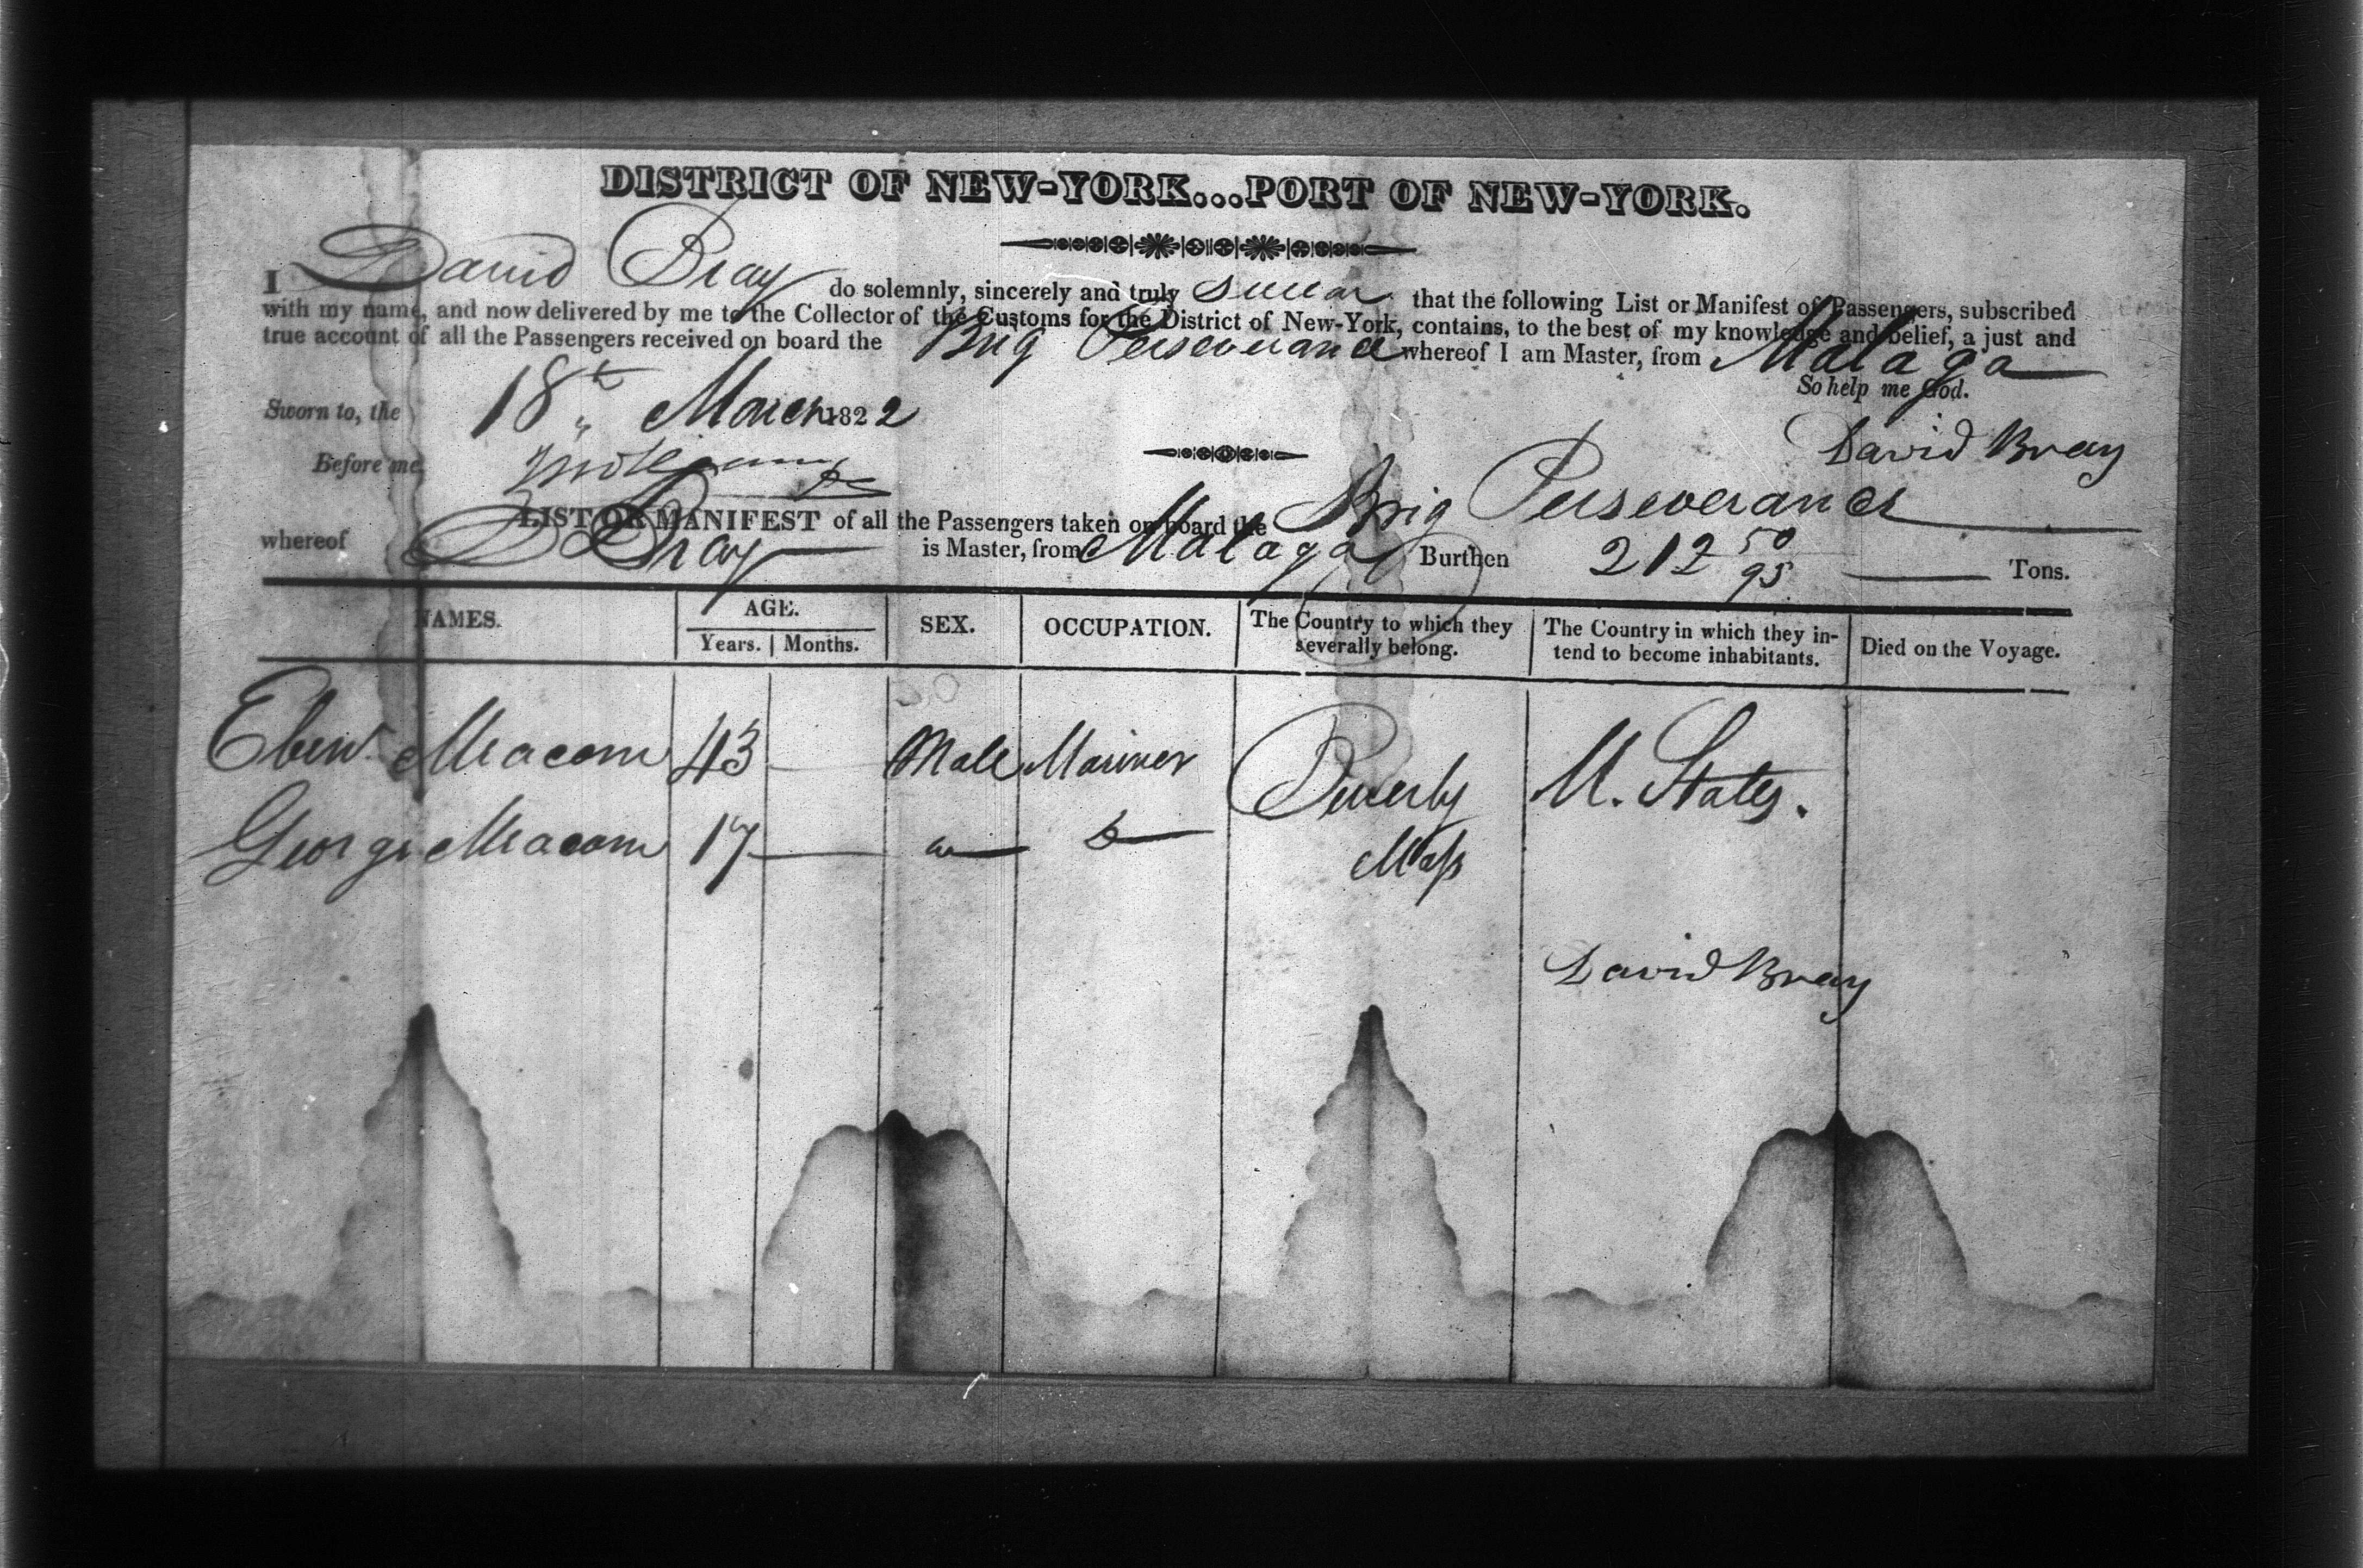 DISTRICT OF NEW-YORK...PORT OF NEW-YORK.
I David Bray do solemnly, sincerely and truly swear that the following List or Manifest of Passengers, subscribed
with my name, and now delivered by me to the Collector of the Customs for the District of New-York, contains, to the best of my knowledge and belief, a just and
true account of all the Passengers received on board the Brig Perseverance whereof I am Master, from Malaga
So help me God.
Sworn to, the 18th March 1822
David Bray
Before me,
LIST OR MANIFEST of all the Passengers taken on board the Brig Perseverance
whereof D Bray is Master, from Malaga Burthen 212 50/95 Tons.
NAMES. AGE. SEX. OCCUPATION. The Country to which they severally belong. The Country in which they intend to become inhabitants. Died on the Voyage.
Years. Months.
Ebenr. Meacom 43 Male Mariner Beverly U. States.
George Meacom 17 Mass
David Bray